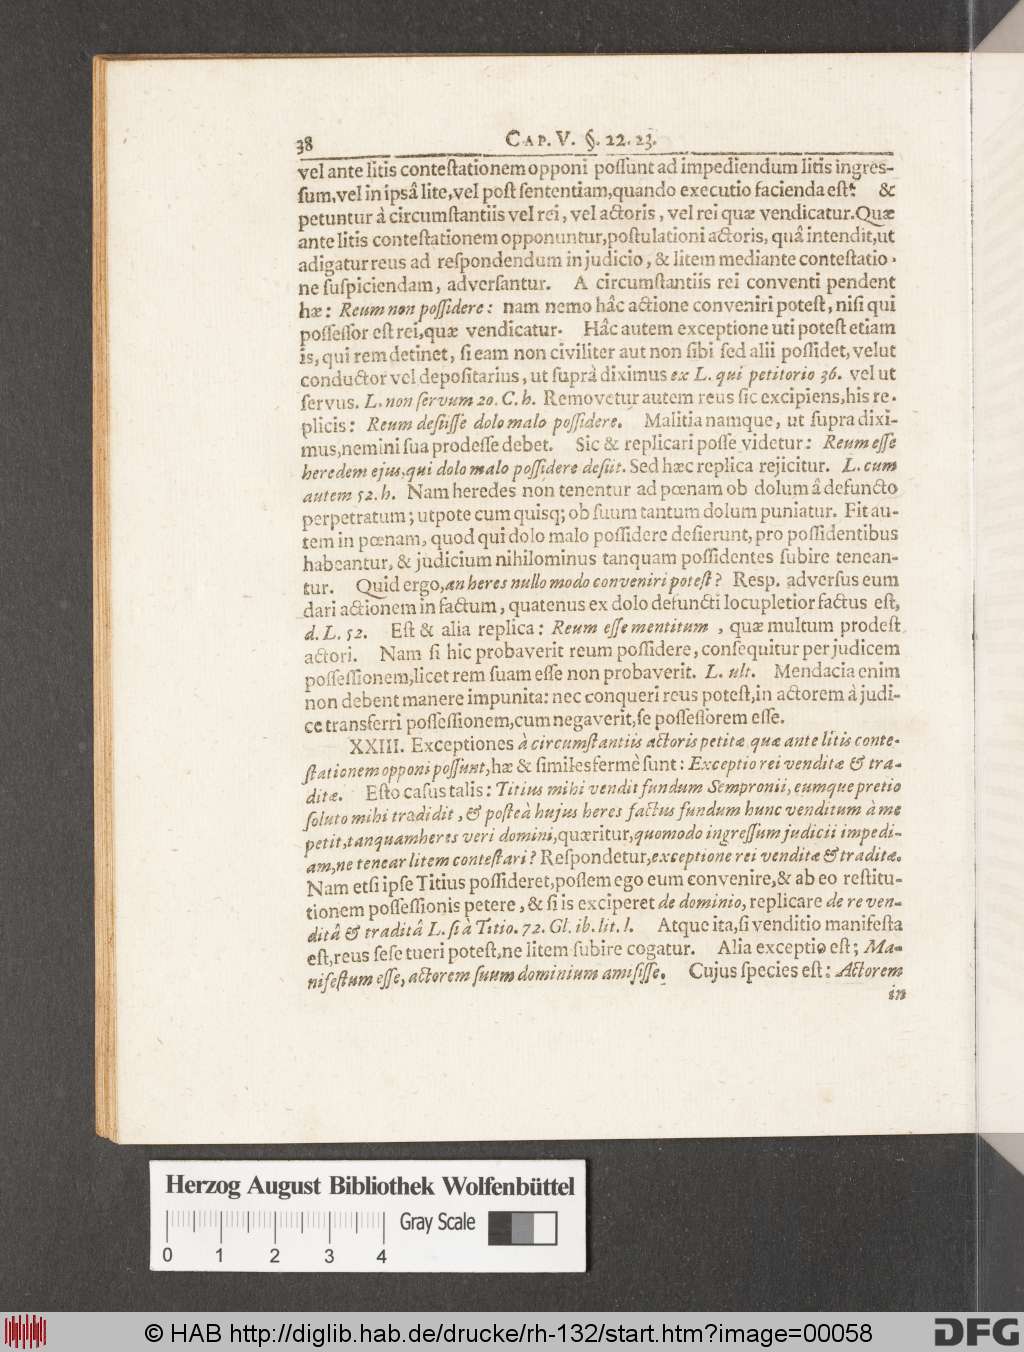 38 CAP. V. §. 22. 23.
vel ante litis contestationem opponi possunt ad impediendum litis ingres-
sum, vel in ipsâ lite, vel post sententiam, quando executio facienda est: &
petuntur à circumstantiis vel rei, vel actoris, vel rei quæ vendicatur. Quæ
ante litis contestationem opponuntur, postulationi actoris, quâ intendit, ut
adigatur reus ad respondendum in judicio, & litem mediante contestatio-
ne suspiciendam, adversantur. A circumstantiis rei conventi pendent
hæ: Reum non possidere: nam nemo hâc actione conveniri potest, nisi qui
possessor est rei, quæ vendicatur. Hâc autem exceptione uti potest etiam
is, qui rem detinet, si eam non civiliter aut non sibi sed alii possidet, velut
conductor vel depositarius, ut suprà diximus ex L. qui petitorio 36. vel ut
servus. L. non servum 20. C. h. Removetur autem reus sic excipiens, his re-
plicis: Reum desiisse dolo malo possidere. Malitia namque, ut supra dixi-
mus, nemini sua prodesse debet. Sic & replicari posse videtur: Reum esse
heredem ejus, qui dolo malo possidere desiit. Sed hæc replica rejicitur. L. cum
autem 52. h. Nam heredes non tenentur ad pœnam ob dolum â defuncto
perpetratum; utpote cum quisq; ob suum tantum dolum puniatur. Fit au-
tem in pœnam, quod qui dolo malo possidere desierunt, pro possidentibus
habeantur, & judicium nihilominus tanquam possidentes subire tenean-
tur. Quid ergo, an heres nullo modo conveniri potest? Resp. adversus eum
dari actionem in factum, quatenus ex dolo defuncti locupletior factus est,
d. L. 52. Est & alia replica: Reum esse mentitum, quæ multum prodest
actori. Nam si hic probaverit reum possidere, consequitur per judicem
possessionem, licet rem suam esse non probaverit. L. ult. Mendacia enim
non debent manere impunita: nec conqueri reus potest, in actorem à judi-
ce transferri possessionem, cum negaverit, se possessorem esse.
XXIII. Exceptiones à circumstantiis actoris petitæ quæ ante litis conte-
stationem opponi possunt, hæ & similes fermè sunt: Exceptio rei venditæ & tra-
ditæ. Esto casus talis: Titius mihi vendit fundum Sempronii, eumque pretio
soluto mihi tradidit, & posteà hujus heres factus fundum hunc venditum à me
petit, tanquam heres veri domini, quæritur, quomodo ingressum judicii impedi-
am, ne tenear litem contestari? Respondetur, exceptione rei venditæ & traditæ.
Nam etsi ipse Titius possideret, possem ego eum convenire, & ab eo restitu-
tionem possessionis petere, & si is exciperet de dominio, replicare de re ven-
ditâ & traditâ L. si à Titio. 72. Gl. ib. lit. l. Atque ita, si venditio manifesta
est, reus sese tueri potest, ne litem subire cogatur. Alia exceptio est; Ma-
nifestum esse, actorem suum dominium amisisse. Cujus species est: Actorem
in
Herzog August Bibliothek Wolfenbüttel
Gray Scale
0 1 2 3 4
© HAB http://diglib.hab.de/drucke/rh-132/start.htm?image=00058
DFG